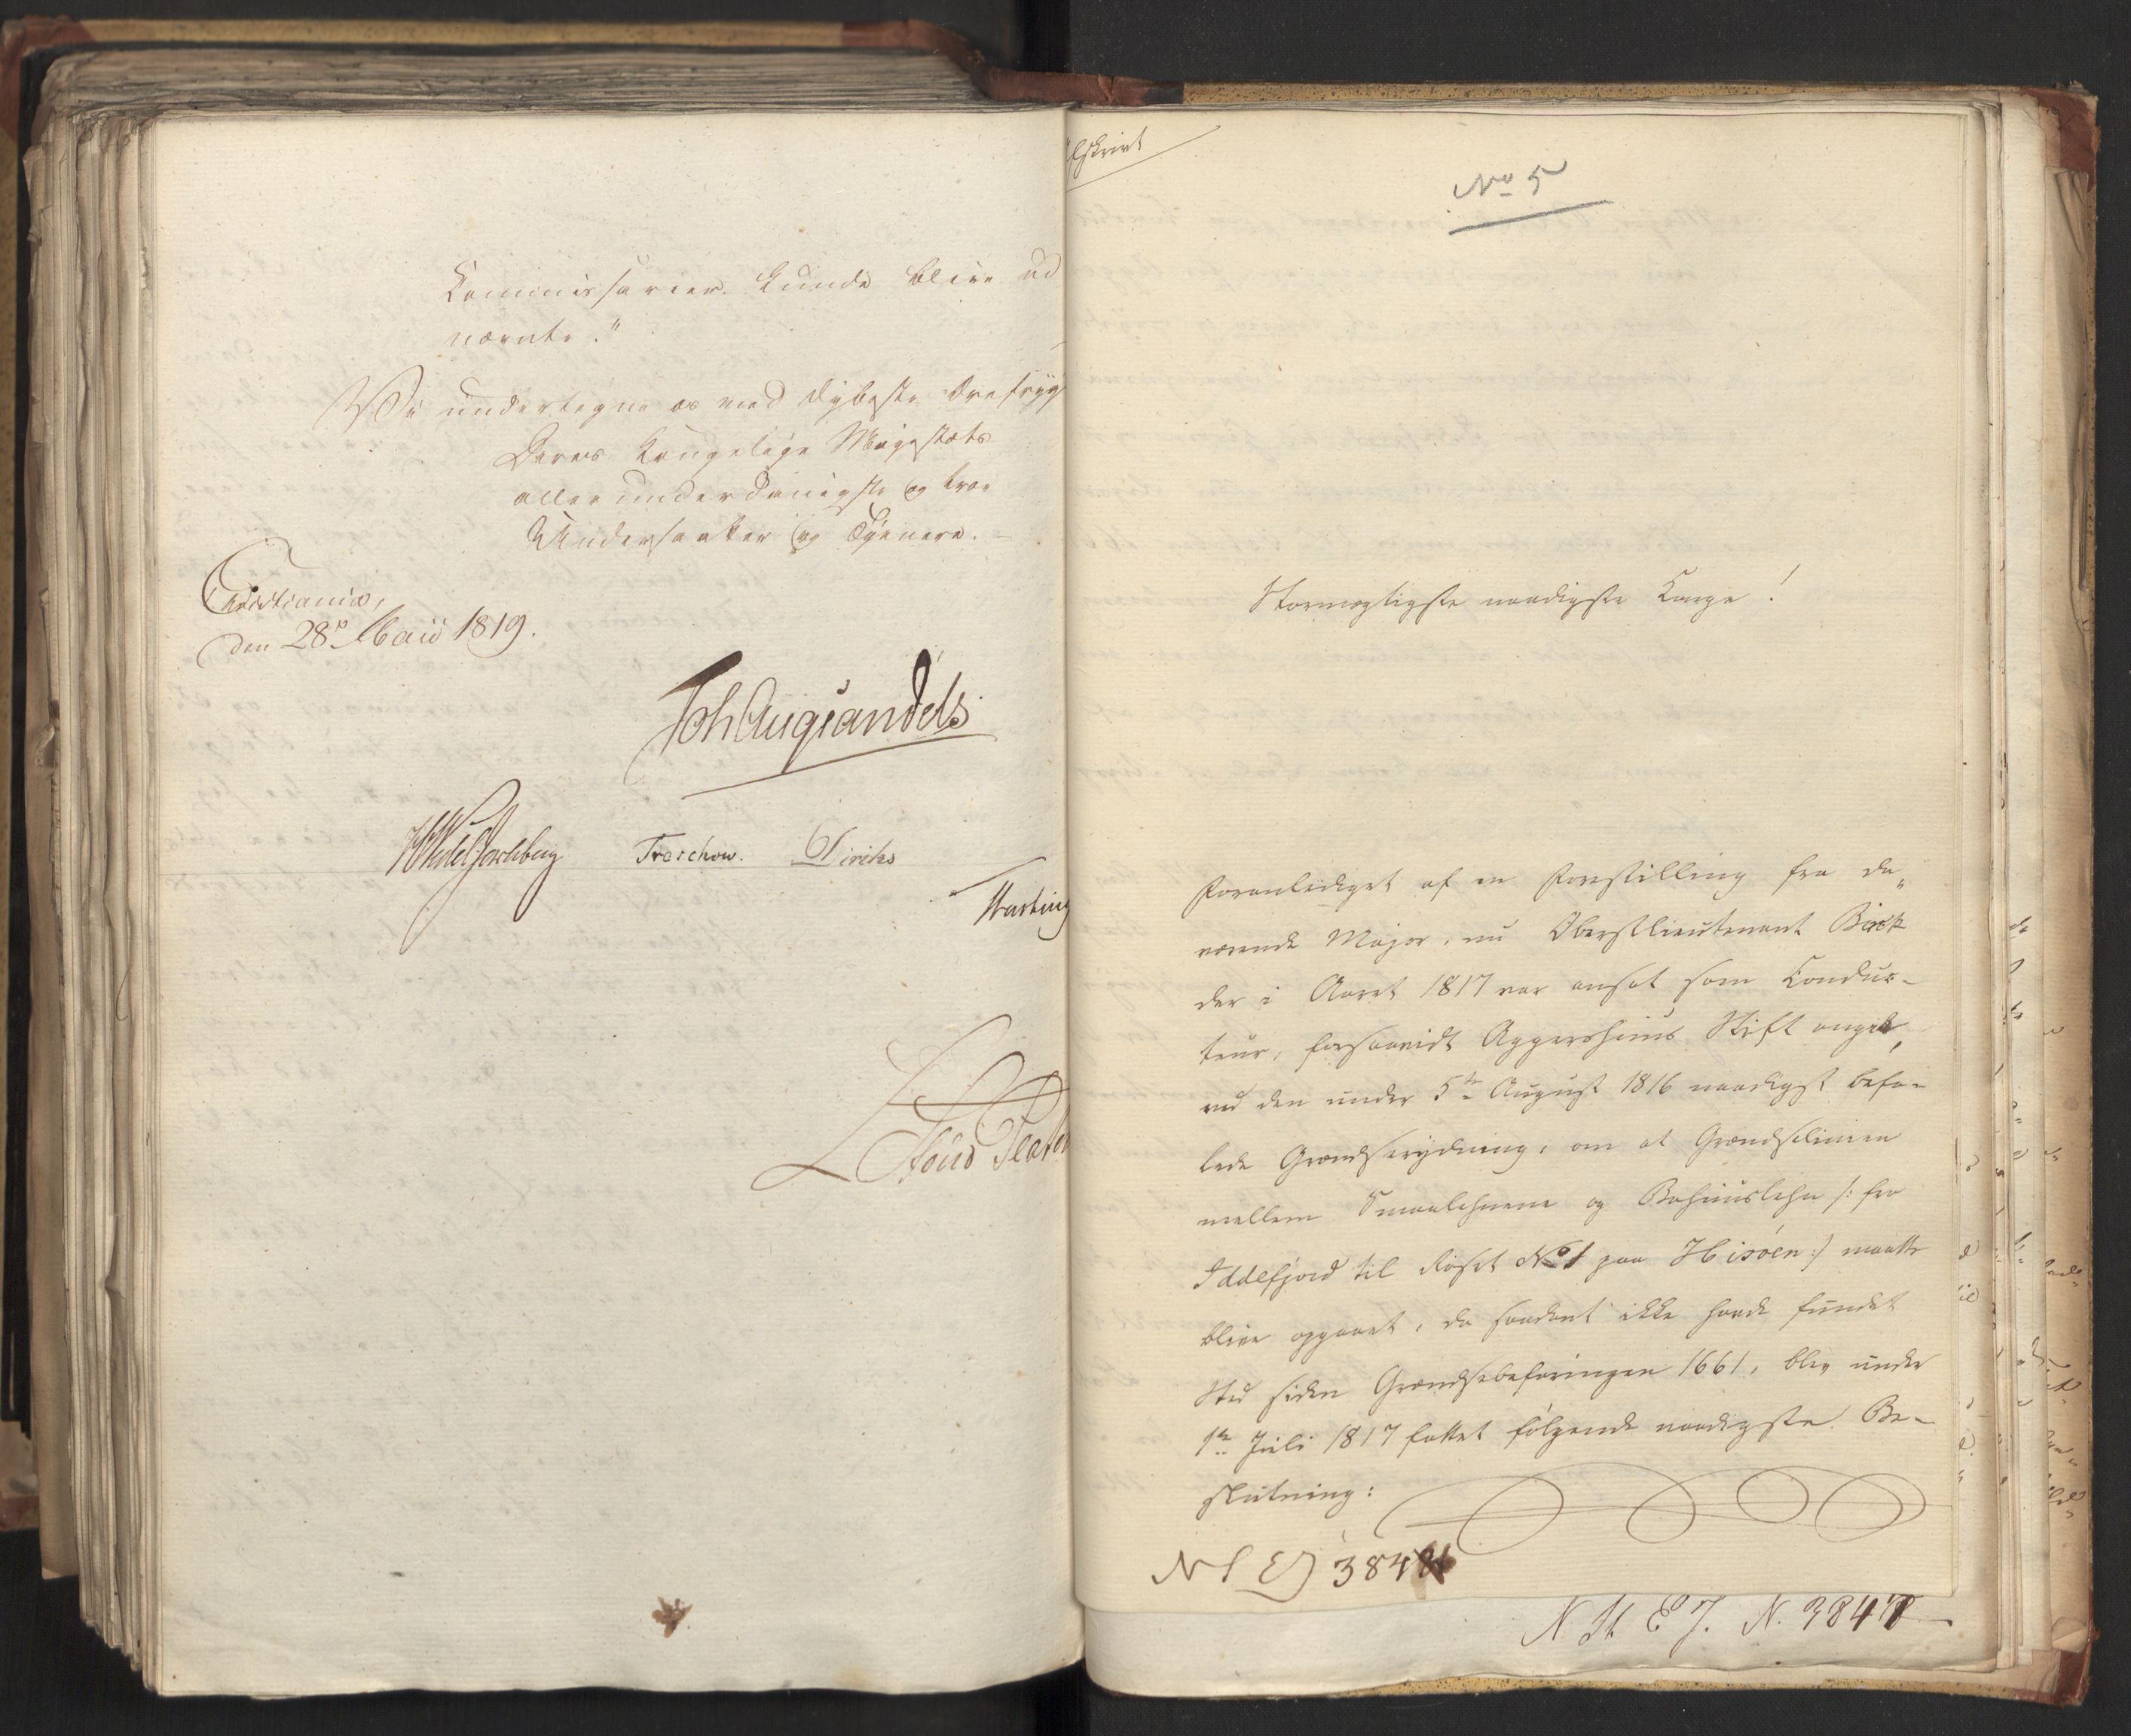 Commissarier kunde blive ud
nævnte."
Vi undertegne os med dybeste Ærefrygt
Deres Kongelige Majestæts
allerunderdanigste og troe
Undersaatter og Tjenere.
Christiania,
den 28de Maii 1819.
Joh Aug Sandels
HWedel Jarlsberg Treschow. Diriks
Hasting
Fred
Afskrivt
No 5
Stormægtigste naadigste Konge!
Foranlediget af en Forestilling fra da„
værende Major, nu Oberstlieutenant Birch
der i Aaret 1817 var ansat som Conduc-
teur, forsaavidt Aggershuus Stift angik,
ved den under 5te August 1816 naadigst befa-
lede Grændserydning, om at Grændselinien
mellem Smaalehnene og Bahuuslehn /: fra
Iddefjord til Røset No 1 paa Hisöen :/ maatte
blive opgaaet, da saadant ikke havde fundet
Sted siden Grændsebefaringen 1661, blev under
1te Juli 1817 fattet følgende naadigste Be-
slutning:
N S EJ 384
N St. E J. N. 3847